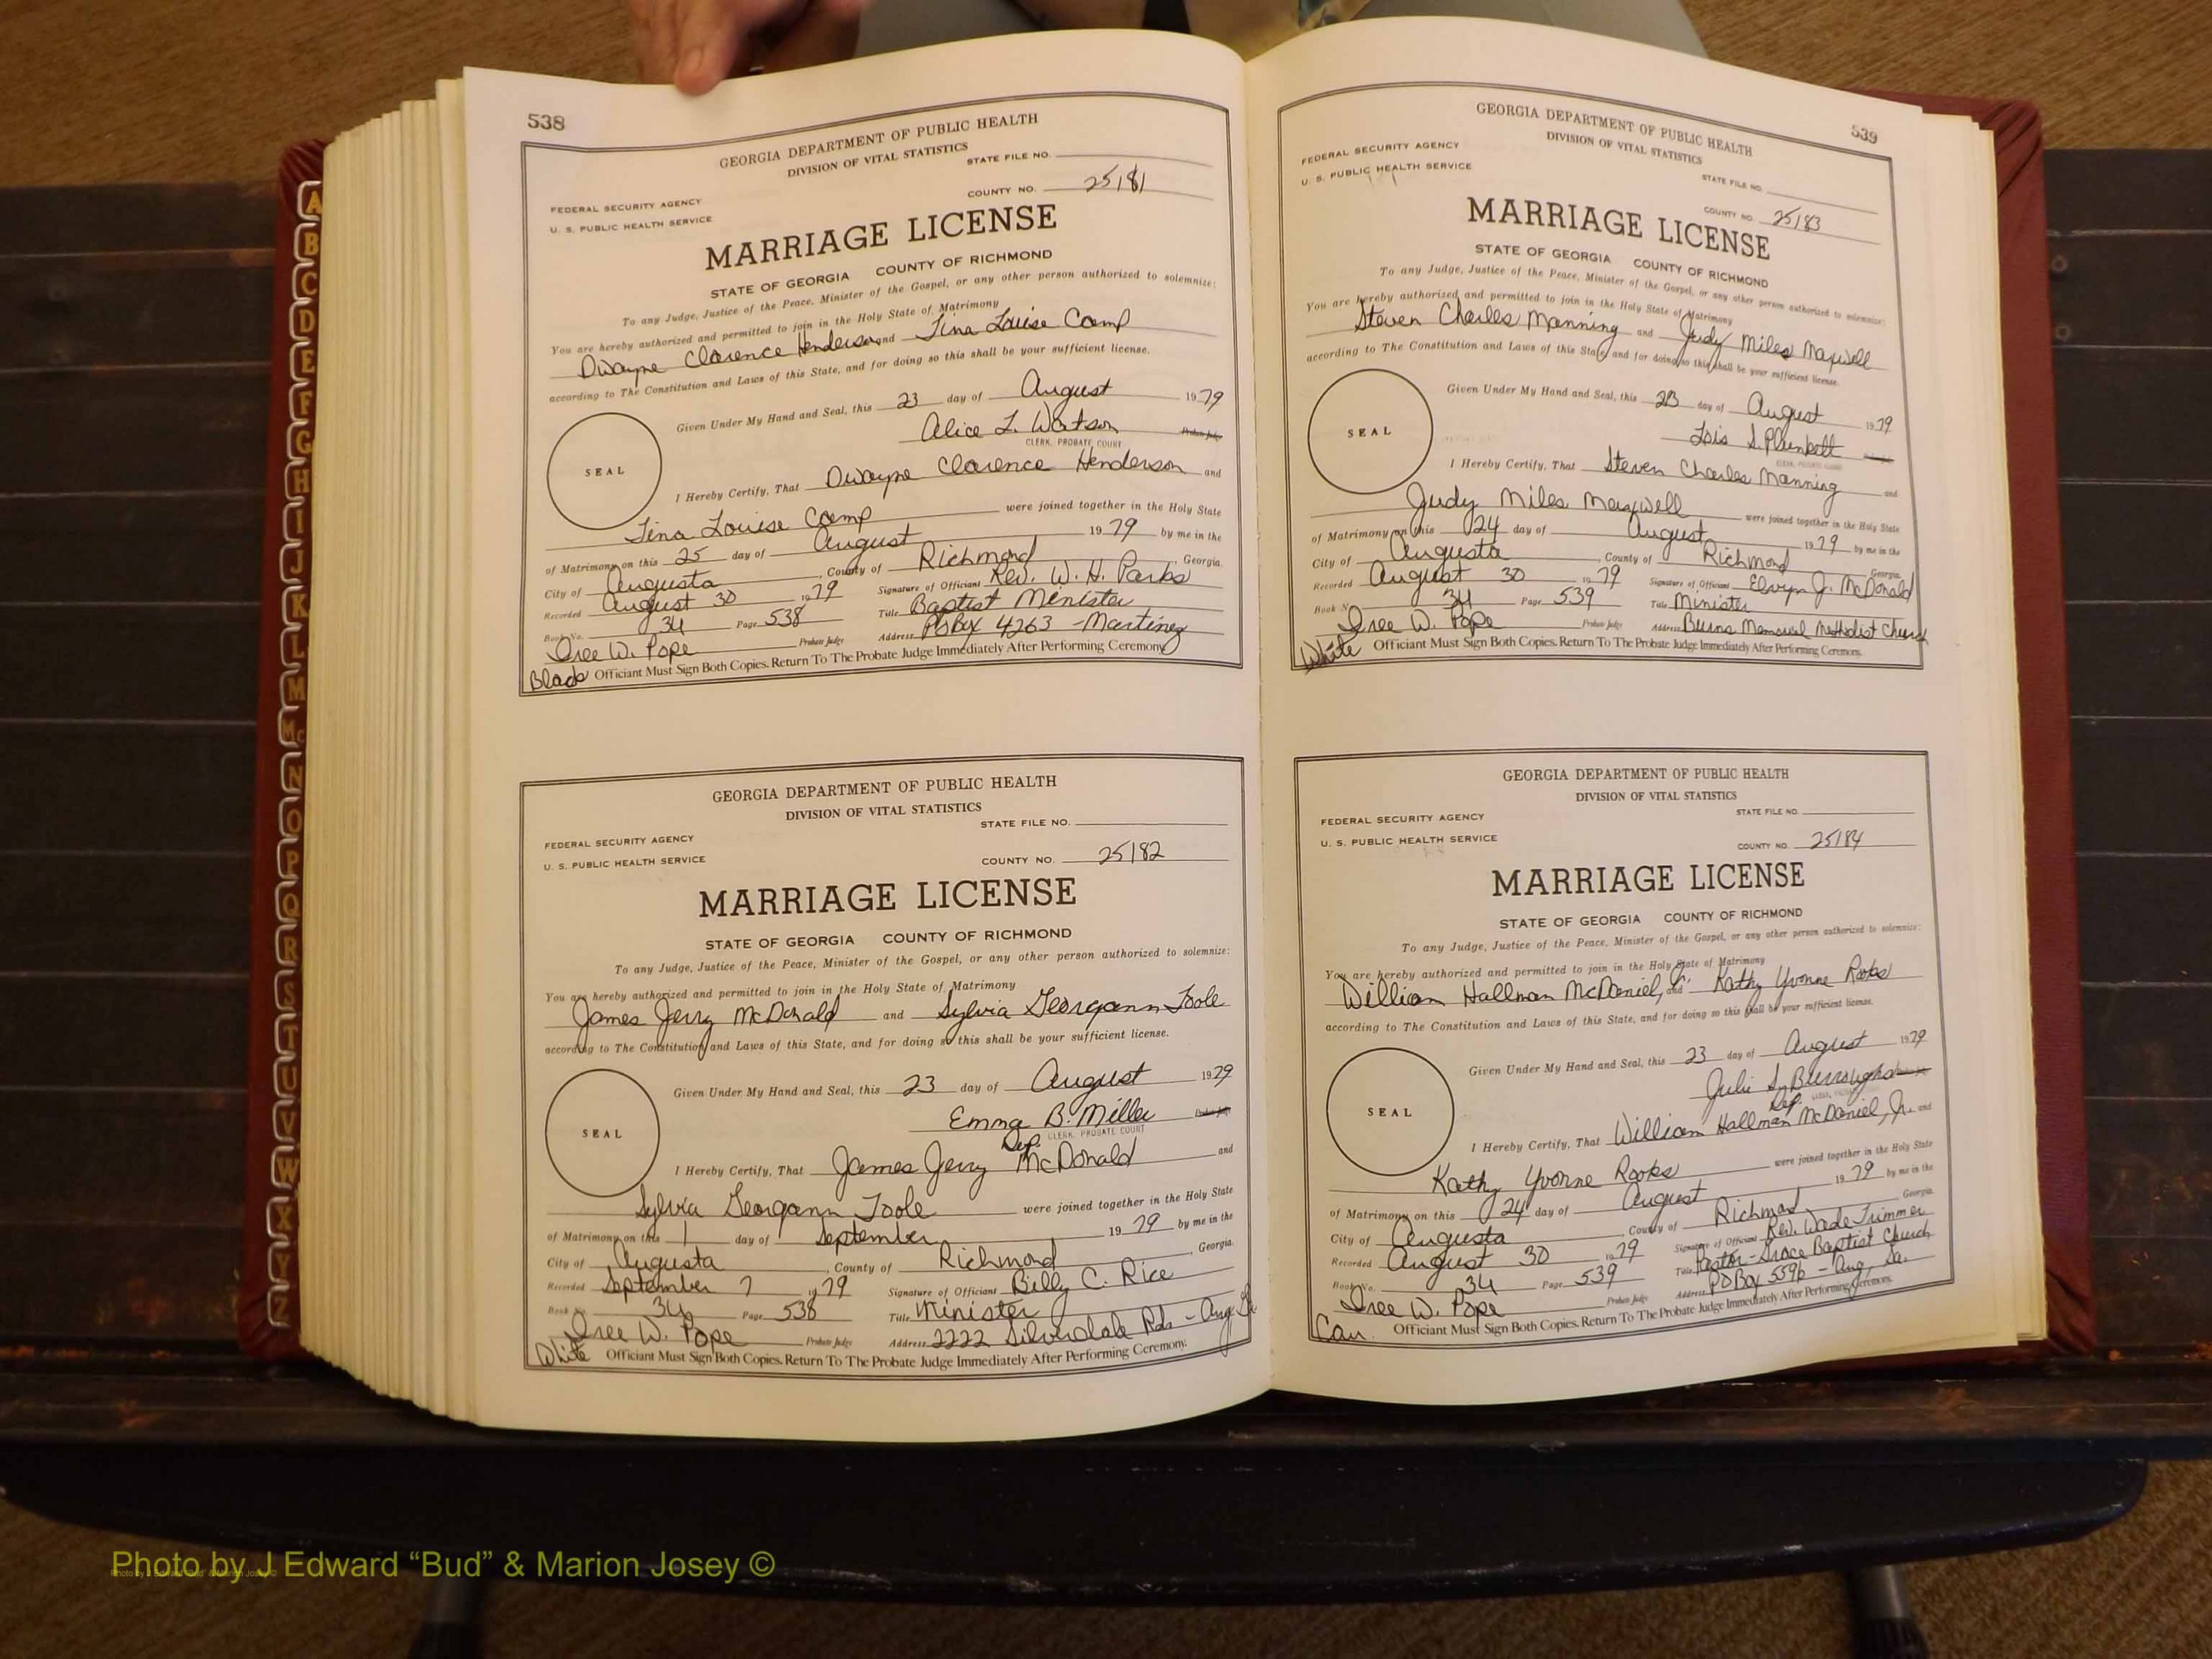 538
GEORGIA DEPARTMENT OF PUBLIC HEALTH
DIVISION OF VITAL STATISTICS
STATE FILE NO.
COUNTY NO. 25181
FEDERAL SECURITY AGENCY
U. S. PUBLIC HEALTH SERVICE
MARRIAGE LICENSE
STATE OF GEORGIA COUNTY OF RICHMOND
To any Judge, Justice of the Peace, Minister of the Gospel, or any other person authorized to solemnize:
You are hereby authorized and permitted to join in the Holy State of Matrimony
Dwayne Clarence Henderson and Tina Louise Camp
according to The Constitution and Laws of this State, and for doing so this shall be your sufficient license.
Given Under My Hand and Seal, this 23 day of August 1979
Alice L. Watson Probate Judge
CLERK, PROBATE COURT
SEAL
I Hereby Certify, That Dwayne Clarence Henderson and
Tina Louise Camp were joined together in the Holy State
of Matrimony on this 25 day of August 1979 by me in the
City of Augusta, County of Richmond, Georgia.
Recorded August 30 1979 Signature of Officiant Rev. W. H. Parks
Book No. 34 Page 538 Title Baptist Minister
Isee W. Pope Probate Judge Address PO Box 4263 - Martinez
Black Officiant Must Sign Both Copies. Return To The Probate Judge Immediately After Performing Ceremony
GEORGIA DEPARTMENT OF PUBLIC HEALTH
DIVISION OF VITAL STATISTICS
STATE FILE NO.
FEDERAL SECURITY AGENCY
U. S. PUBLIC HEALTH SERVICE
COUNTY NO. 25182
MARRIAGE LICENSE
STATE OF GEORGIA COUNTY OF RICHMOND
To any Judge, Justice of the Peace, Minister of the Gospel, or any other person authorized to solemnize:
You are hereby authorized and permitted to join in the Holy State of Matrimony
James Jerry McDonald and Sylvia Georgann Toole
according to The Constitution and Laws of this State, and for doing so this shall be your sufficient license.
Given Under My Hand and Seal, this 23 day of August 1979
Emma B. Miller Probate Judge
Dep. CLERK, PROBATE COURT
SEAL
I Hereby Certify, That James Jerry McDonald and
Sylvia Georgann Toole were joined together in the Holy State
of Matrimony on this 1 day of September 1979 by me in the
City of Augusta, County of Richmond, Georgia.
Recorded September 7 1979 Signature of Officiant Billy C. Rice
Book No. 34 Page 538 Title Minister
Isee W. Pope Probate Judge Address 2222 Silverdale Rds - Aug Ga
White Officiant Must Sign Both Copies. Return To The Probate Judge Immediately After Performing Ceremony.
539
GEORGIA DEPARTMENT OF PUBLIC HEALTH
DIVISION OF VITAL STATISTICS
FEDERAL SECURITY AGENCY
U. S. PUBLIC HEALTH SERVICE
STATE FILE NO.
COUNTY NO. 25183
MARRIAGE LICENSE
STATE OF GEORGIA COUNTY OF RICHMOND
To any Judge, Justice of the Peace, Minister of the Gospel, or any other person authorized to solemnize:
You are hereby authorized and permitted to join in the Holy State of Matrimony
Steven Charles Manning and Judy Miles Maxwell
according to The Constitution and Laws of this State, and for doing so this shall be your sufficient license.
Given Under My Hand and Seal, this 23 day of August 1979
Lois S. Plunkett Probate Judge
CLERK, PROBATE COURT
SEAL
I Hereby Certify, That Steven Charles Manning and
Judy Miles Maxwell were joined together in the Holy State
of Matrimony on this 24 day of August 1979 by me in the
City of Augusta, County of Richmond Georgia.
Recorded August 30 1979 Signature of Officiant Elvyn J. McDonald
Book No. 34 Page 539 Title Minister
Isee W. Pope Probate Judge Address Burns Memorial Methodist Church
White Officiant Must Sign Both Copies. Return To The Probate Judge Immediately After Performing Ceremony.
GEORGIA DEPARTMENT OF PUBLIC HEALTH
DIVISION OF VITAL STATISTICS
STATE FILE NO.
FEDERAL SECURITY AGENCY
U. S. PUBLIC HEALTH SERVICE
COUNTY NO. 25184
MARRIAGE LICENSE
STATE OF GEORGIA COUNTY OF RICHMOND
To any Judge, Justice of the Peace, Minister of the Gospel, or any other person authorized to solemnize:
You are hereby authorized and permitted to join in the Holy State of Matrimony
William Hallman McDaniel, Jr. and Kathy Yvonne Rooks
according to The Constitution and Laws of this State, and for doing so this shall be your sufficient license.
Given Under My Hand and Seal, this 23 day of August 1979
Julie S. Burroughs
Dep.
SEAL
I Hereby Certify, That William Hallman McDaniel, Jr. and
Kathy Yvonne Rooks were joined together in the Holy State
of Matrimony on this 24 day of August 1979 by me in the
City of Augusta, County of Richmond, Georgia.
Recorded August 30 1979 Signature of Officiant Rev. Wade Trimmer
Book No. 34 Page 539 Title Pastor - Grace Baptist Church
Isee W. Pope Probate Judge Address PO Box 5596 - Aug, Ga.
Cau. Officiant Must Sign Both Copies. Return To The Probate Judge Immediately After Performing Ceremony.
A
B
C
D
E
F
G
H
I
J
K
L
M
Mc
N
O
P
Q
R
S
T
U
V
W
X
Y
Z
Photo by J Edward “Bud” & Marion Josey ©
Photo by J Edward “Bud” & Marion Josey ©